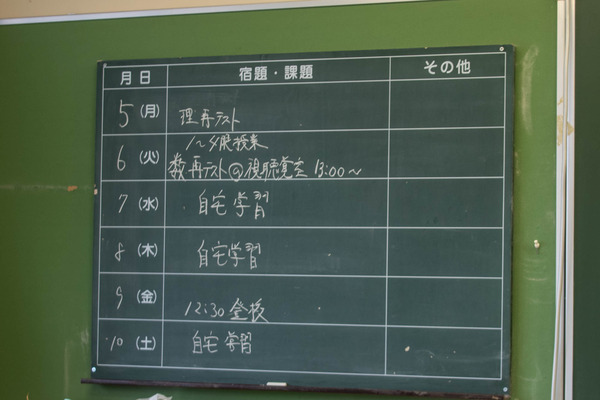 月日 宿題・課題 その他
5 (月) 理再テスト
1〜4限授業
6 (火) 数再テスト@視聴覚室 13:00〜
7 (水) 自宅学習
8 (木) 自宅学習
9 (金) 12:30 登校
10 (土) 自宅学習